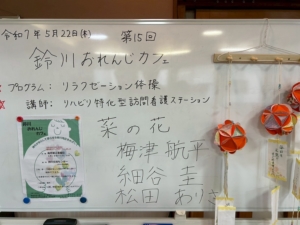 令和7年5月22日(木) 第15回
鈴川おれんじカフェ
☆プログラム: リラクゼーション体操
☆講師: リハビリ特化型訪問看護ステーション
菜の花
梅津 航平
細谷 圭
松田 ありさ